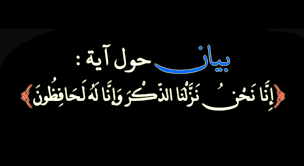 بيان حول آية :
﴿إِنَّا نَحْنُ نَزَّلْنَا الذِّكْرَ وَإِنَّا لَهُ لَحَافِظُونَ﴾